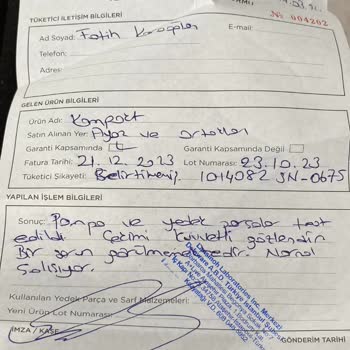 TÜKETİCİ İLETİŞİM BİLGİLERİ
№ 004202
Ad Soyad: Fatih
E-mail:
Telefon:
Adres:
GELEN ÜRÜN BİLGİLERİ
Ürün Adı: Kompakt
Satın Alınan Yer: Ayaz ve Ortakları
Garanti Kapsamında
Garanti Kapsamında Değil
Fatura Tarihi: 21.12.2023 Lot Numarası: 23.10.23
Tüketici Şikayeti: Belirtilmemiş. 1014082 SN-0675
YAPILAN İŞLEM BİLGİLERİ
Sonuç: Pompa ve yedek parçalar test
edildi Çekimi kuvvetli gözlendi
Bir sorun görülmemektedir. Normal
Çalışıyor.
Kullanılan Yedek Parça ve Sarf Malzemeleri:
Yeni Ürün Lot Numarası:
İMZA / KAŞE
GÖNDERİM TARİHİ
Laboratories Inc. Merkezi
Delaware A.B.D. Türkiye İstanbul Şubesi